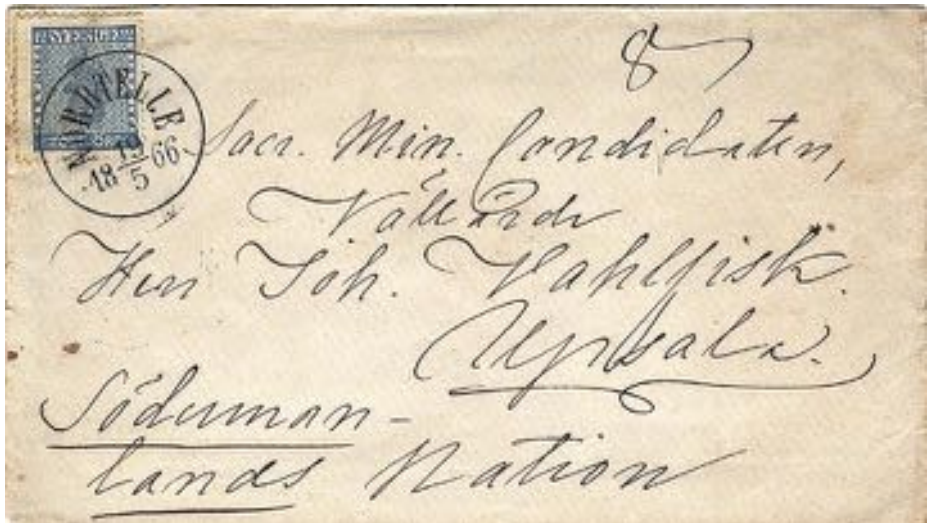 SVERIGE
NORRTELJE
19
18 66
5
8
Sacr. Min. Candidaten,
Välärde
Herr Joh. Wahlfisk.
Upsala.
Söderman-
lands Nation